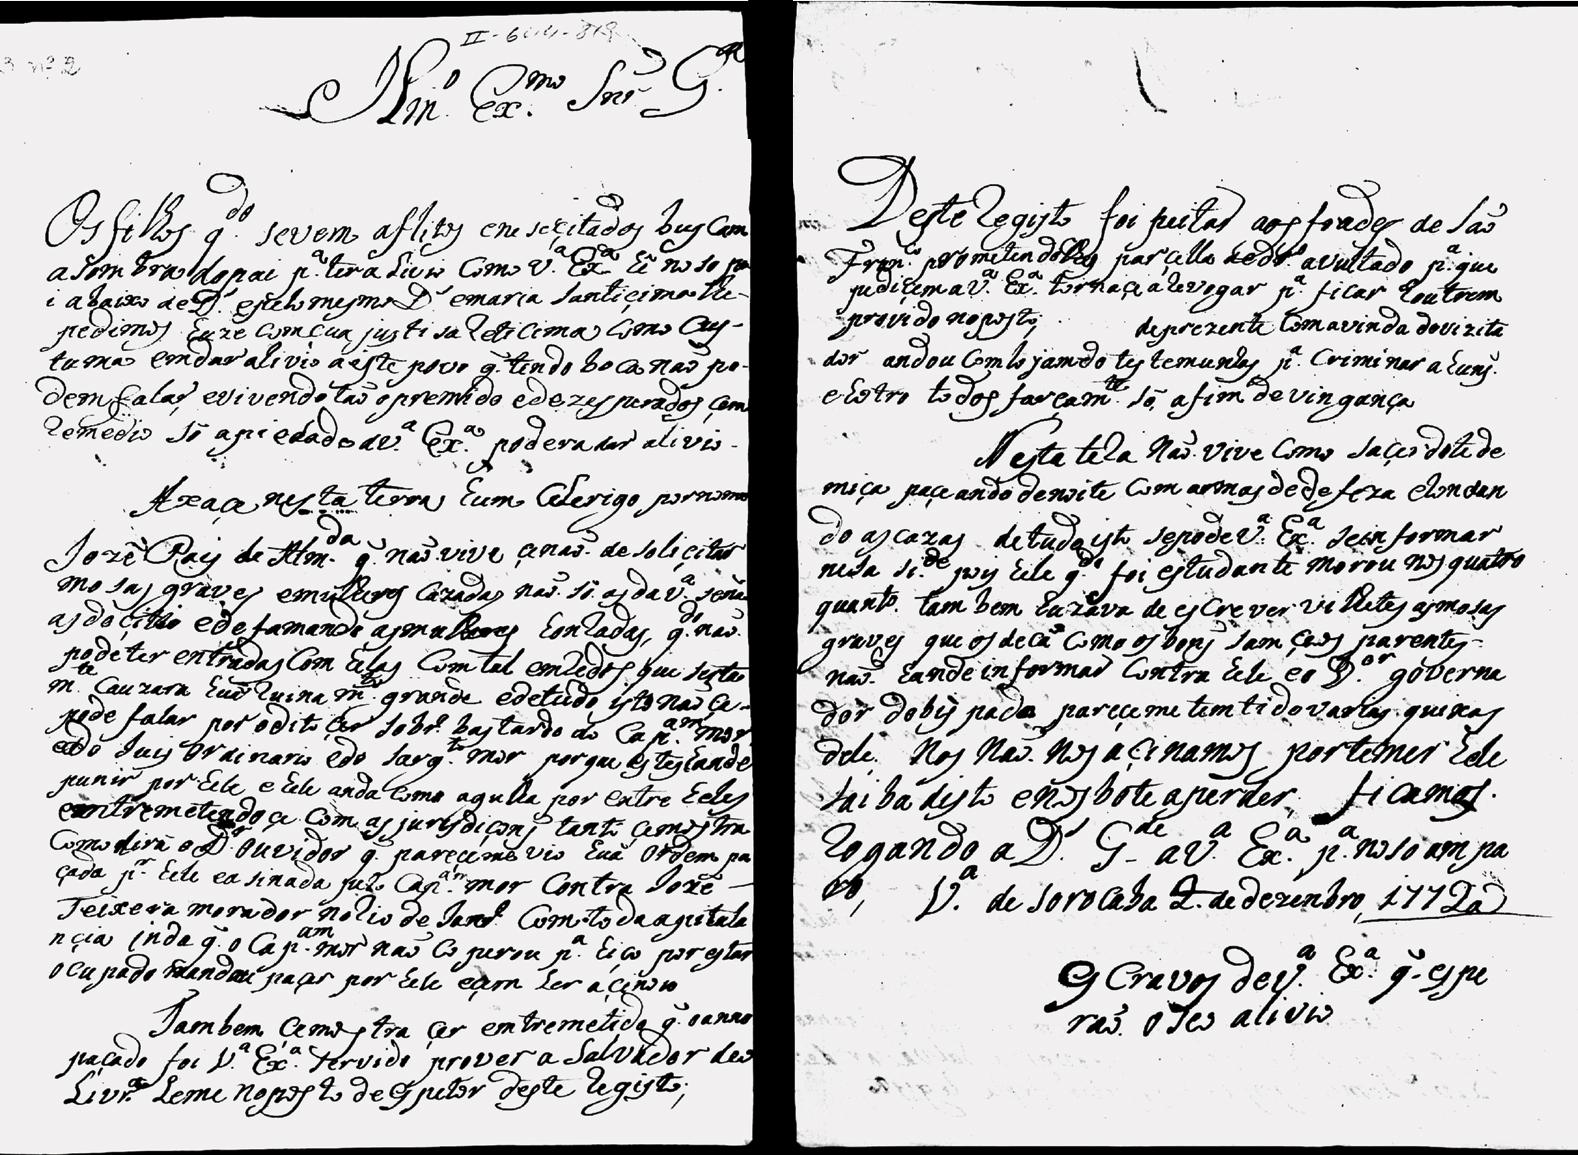 II-
nº 2
Illm.º Ex.mo Snr. G.al
Os filhos q.do sevem aflitos eneseçitados buscam
asombra dopai p.ª ter alivio Como V.ª Ex.ª hé noso pa
i abaixo de D.s epelo mesmo D.s emaria Santiçima lhe-
pedimos huze Com çua justisa Retiçima Como Cus-
tuma emdar alivio aeste povo q. tendo boca naõ po-
dem falar evivendo taõ opremido edezespurados çem
Remedio Só apiedade de V.ª Ex.ª poderadar alivio -
Axaçe nesta terra hum Clerigo por nome
Jozê Pais de Alm.da q. naõ. vive çenaõ. de soliçitar
mosas graves emulheres Cazadas naõ. Só. as da V.ª senã
as doçitio edefamando asmulheres honradas, q.do naõ.
podeter entradas Com Elas Com tal emRedos, que Sesta
m.te Cauzara huã Ruina m.to grande edetudo isto naõ çe-
pode falar por odito çer Sobr.º bastardo do Cap.am mor
edo Juis Ordinario edo Sarg.to mor porque estes hande
punir por Ele e Ele anda Como agulha por entre Eeles
emtremetendoçe Com as jurisdiçons tanto çemostra
Como dirá o D.r Ouvidor q. pareçeme vio huã Ordem pa
çada p.r Ele easinada pelo Cap.am mor Contra Jozê -
Teixera morador noRio de Janr.º Com toda açistala
nçia inda q. o Cap.am mor naõ Co perou p.ª hiço por estar
ocupado mandou paçar por Ele eçem Ler açinou
Tambem çemostra çer entremetido q. oanno
paçado foi V.ª Ex.ª Servido prover a Salvador de
Livr.ª Leme noposto de Espetor deste Registo;
Deste Registo foi peitar aos frades de Saõ
Fran.co prometendolhes parçella de dr.º avultado p.ª que
pediçem a V.ª Ex.ª tornaçe aRevogar p.ª ficar houtrem
provido noposto; deprezente Comavinda dovizita
dor andou Comlojamdo testemunhas p.ª Criminar a huns.
eLotro todos farçam.te Só, afim devingança
Nesta teRa Naõ. vive Como Saçerdote de
miça paçeando denoite Com armas dedefeza eRondan
do as cazas detudo isto sepode V.ª Ex.ª Seinformar
nesa Si.de pois Ele q.do foi estudante morou nos quatro
quanto. tambem huzava de esCrever vilhetes asmosas
graves que os deCá Como os bons Sam çeos parentes-
naõ. hande informar Contra Ele eo D.or governa
dor dobispado pareçeme temtido varias queixas
dele. Nos Naõ. Nos açinamos por temer Ele
Saiba disto enos bote aperder; ficamos.
Rogando a D.s G.de aV.ª Ex.ª p.ª noso ampa
ro, V.ª de Sorocaba 2. de dezenbro, 1772 a
EsCravos de V.ª Ex.ª q. espe
raõ. o Seo alivio